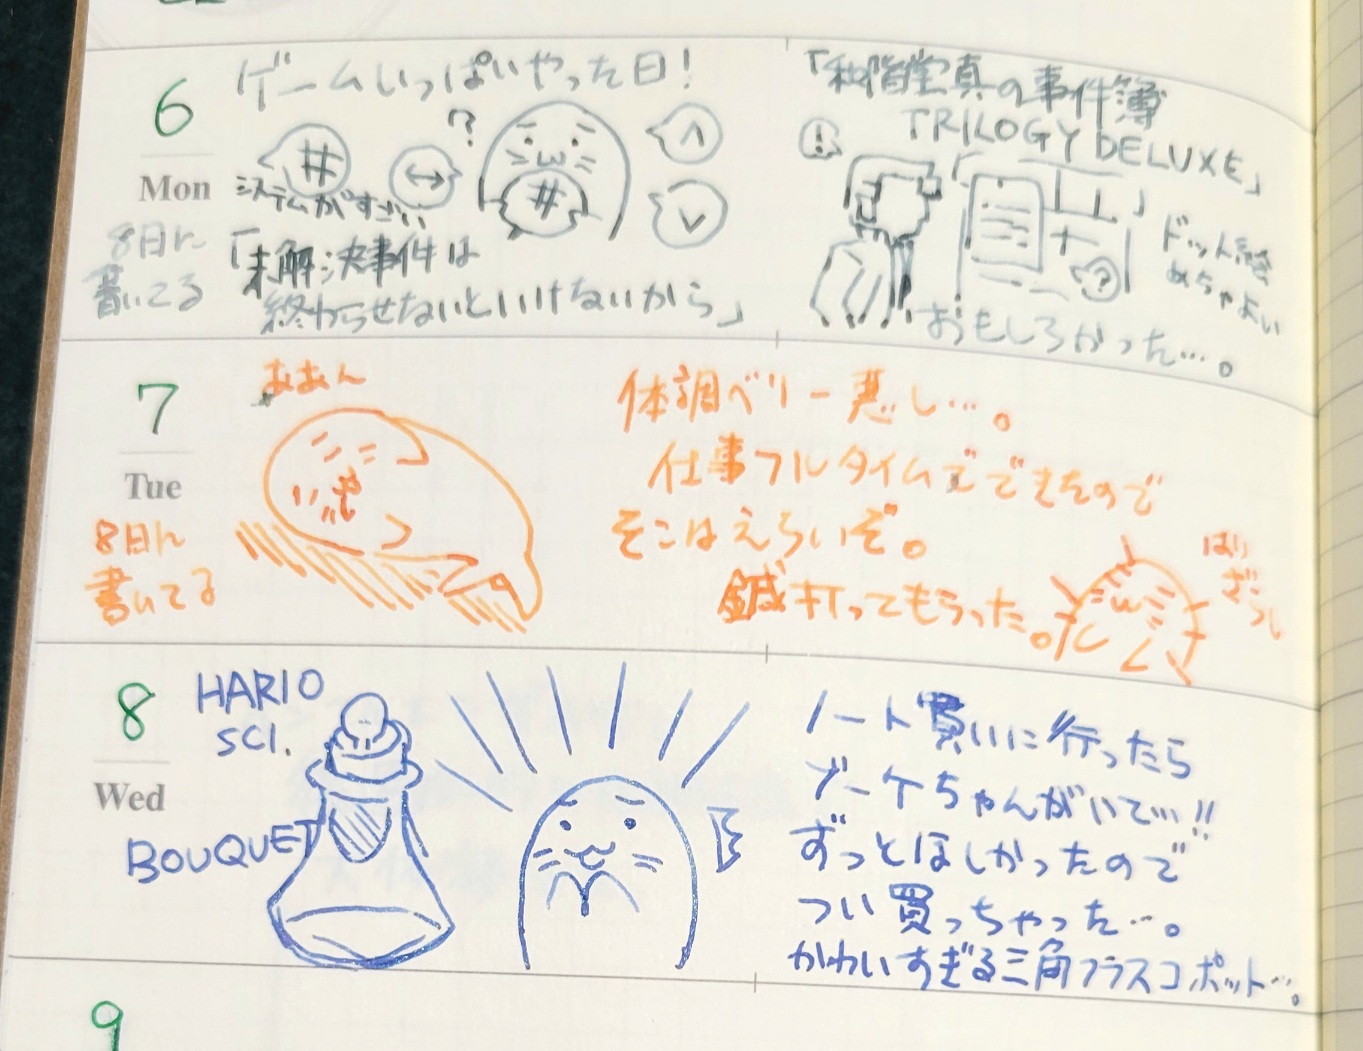 6
Mon
8日に
書いてる
ゲームいっぱいやった日!
#
?
システムがすごい
↔
#
∧
∨
「未解決事件は
終わらせないといけないから」
「和階堂真の事件簿
TRILOGY DELUXE」
!
?
ドット絵
めちゃよい
おもしろかった…。
7
Tue
8日に
書いてる
ああん
体調ベリー悪し…。
仕事フルタイムでできたので
そこはえらいぞ。
鍼打ってもらった。
はり
ざらし
8
Wed
HARIO
SCI.
BOUQUET
ノート買いに行ったら
ブーケちゃんがいて…!!
ずっとほしかったので
つい買っちゃった…。
かわいすぎる三角フラスコポット…。
9